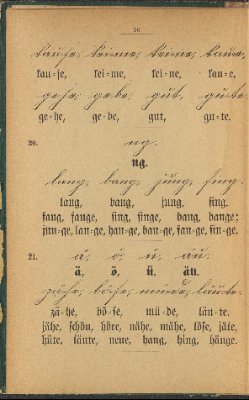 10
lau=se, kei=me, ken=ne, kau=e,
ge=he, ge=be, gut, gu=te.
ge=he, ge=be, gut, gu=te.
20. ng.
ng.
lang, bang, jung, sing.
lang, bang, jung, sing.
fang, fange, sing, singe, bang, bange:
jun=ge, lan=ge, han=ge, ban=ge, fan=ge, sin=ge.
21. ä, ö, ü, äu.
ä, ö, ü, äu.
zähe, böse, müde, läute.
zä=he, bö=se, mü=de, läu=te.
jähe, schön, höre, nähe, mähe, löse, jäte,
hüte, läute, neue, hang, hing, hänge.